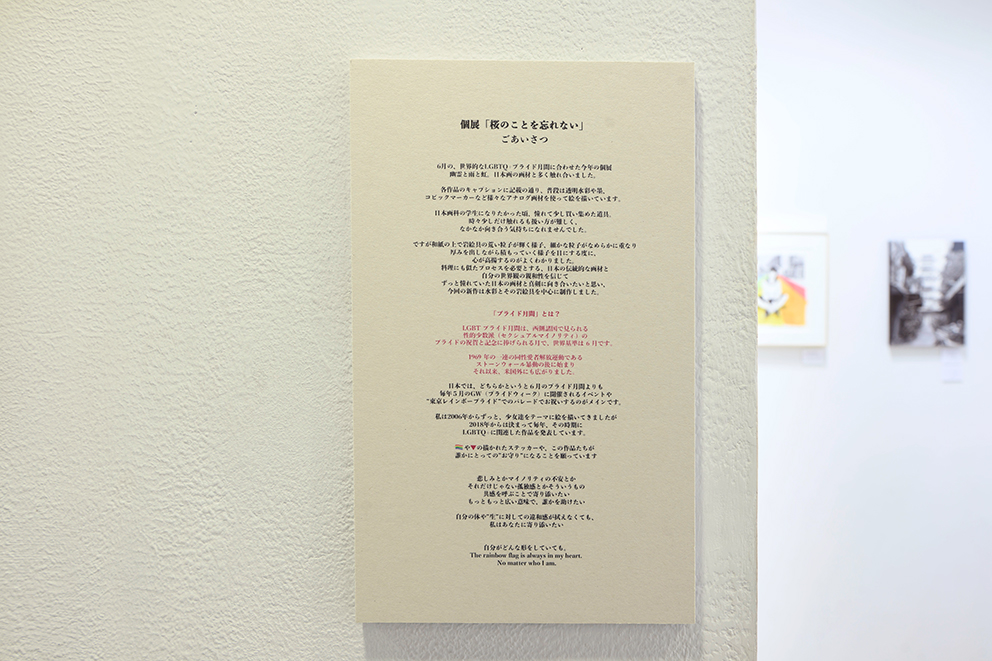 個展「桜のことを忘れない」
ごあいさつ
6月の、世界的なLGBTQ+プライド月間に合わせた今年の個展
幽霊と雨と虹。日本画の画材と多く触れ合いました。
各作品のキャプションに記載の通り、普段は透明水彩や墨、
コピックマーカーなど様々なアナログ画材を使って絵を描いています。
日本画科の学生になりたかった頃、憧れて少し買い集めた道具。
時々少しだけ触れるも扱い方が難しく、
なかなか向き合う気持ちになれませんでした。
ですが和紙の上で岩絵具の荒い粒子が輝く様子、細かな粒子がなめらかに重なり
厚みを出しながら積もっていく様子を目にする度に、
心が高揚するのがよくわかりました。
料理にも似たプロセスを必要とする、日本の伝統的な画材と
自分の世界観の親和性を信じて
ずっと憧れていた日本の画材と真剣に向き合いたいと思い、
今回の新作は水彩とその岩絵具を中心に制作しました。
「プライド月間」とは？
LGBT プライド月間は、西側諸国で見られる
性的少数派（セクシュアルマイノリティ）の
プライドの祝賀と記念に捧げられる月で、世界基準は 6 月です。
1969 年の一連の同性愛者解放運動である
ストーンウォール暴動の後に始まり
それ以来、米国外にも広がりました。
日本では、どちらかというと６月のプライド月間よりも
毎年５月のGW（プライドウィーク）に開催されるイベントや
"東京レインボープライド"でのパレードでお祝いするのがメインです。
私は2006年からずっと、少女達をテーマに絵を描いてきましたが
2018年からは決まって毎年、その時期に
LGBTQ+に関連した作品を発表しています。
🏳️‍🌈や♥の描かれたステッカーや、この作品たちが
誰かにとっての"お守り"になることを願っています
悲しみとかマイノリティの不安とか
それだけじゃない孤独感とかそういうもの
共感を呼ぶことで寄り添いたい
もっともっと広い意味で、誰かを助けたい
自分の体や"生"に対しての違和感が拭えなくても、
私はあなたに寄り添いたい
自分がどんな形をしていても。
The rainbow flag is always in my heart.
No matter who I am.